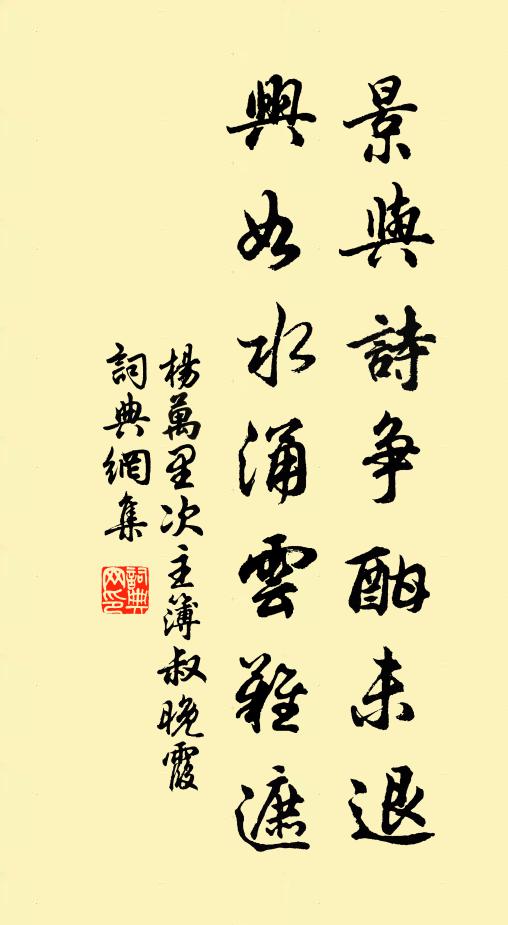 景與詩争酣未退
興如水涌雲難遮
楊萬里次主簿叔晚霞
詞典網集
詞典網印